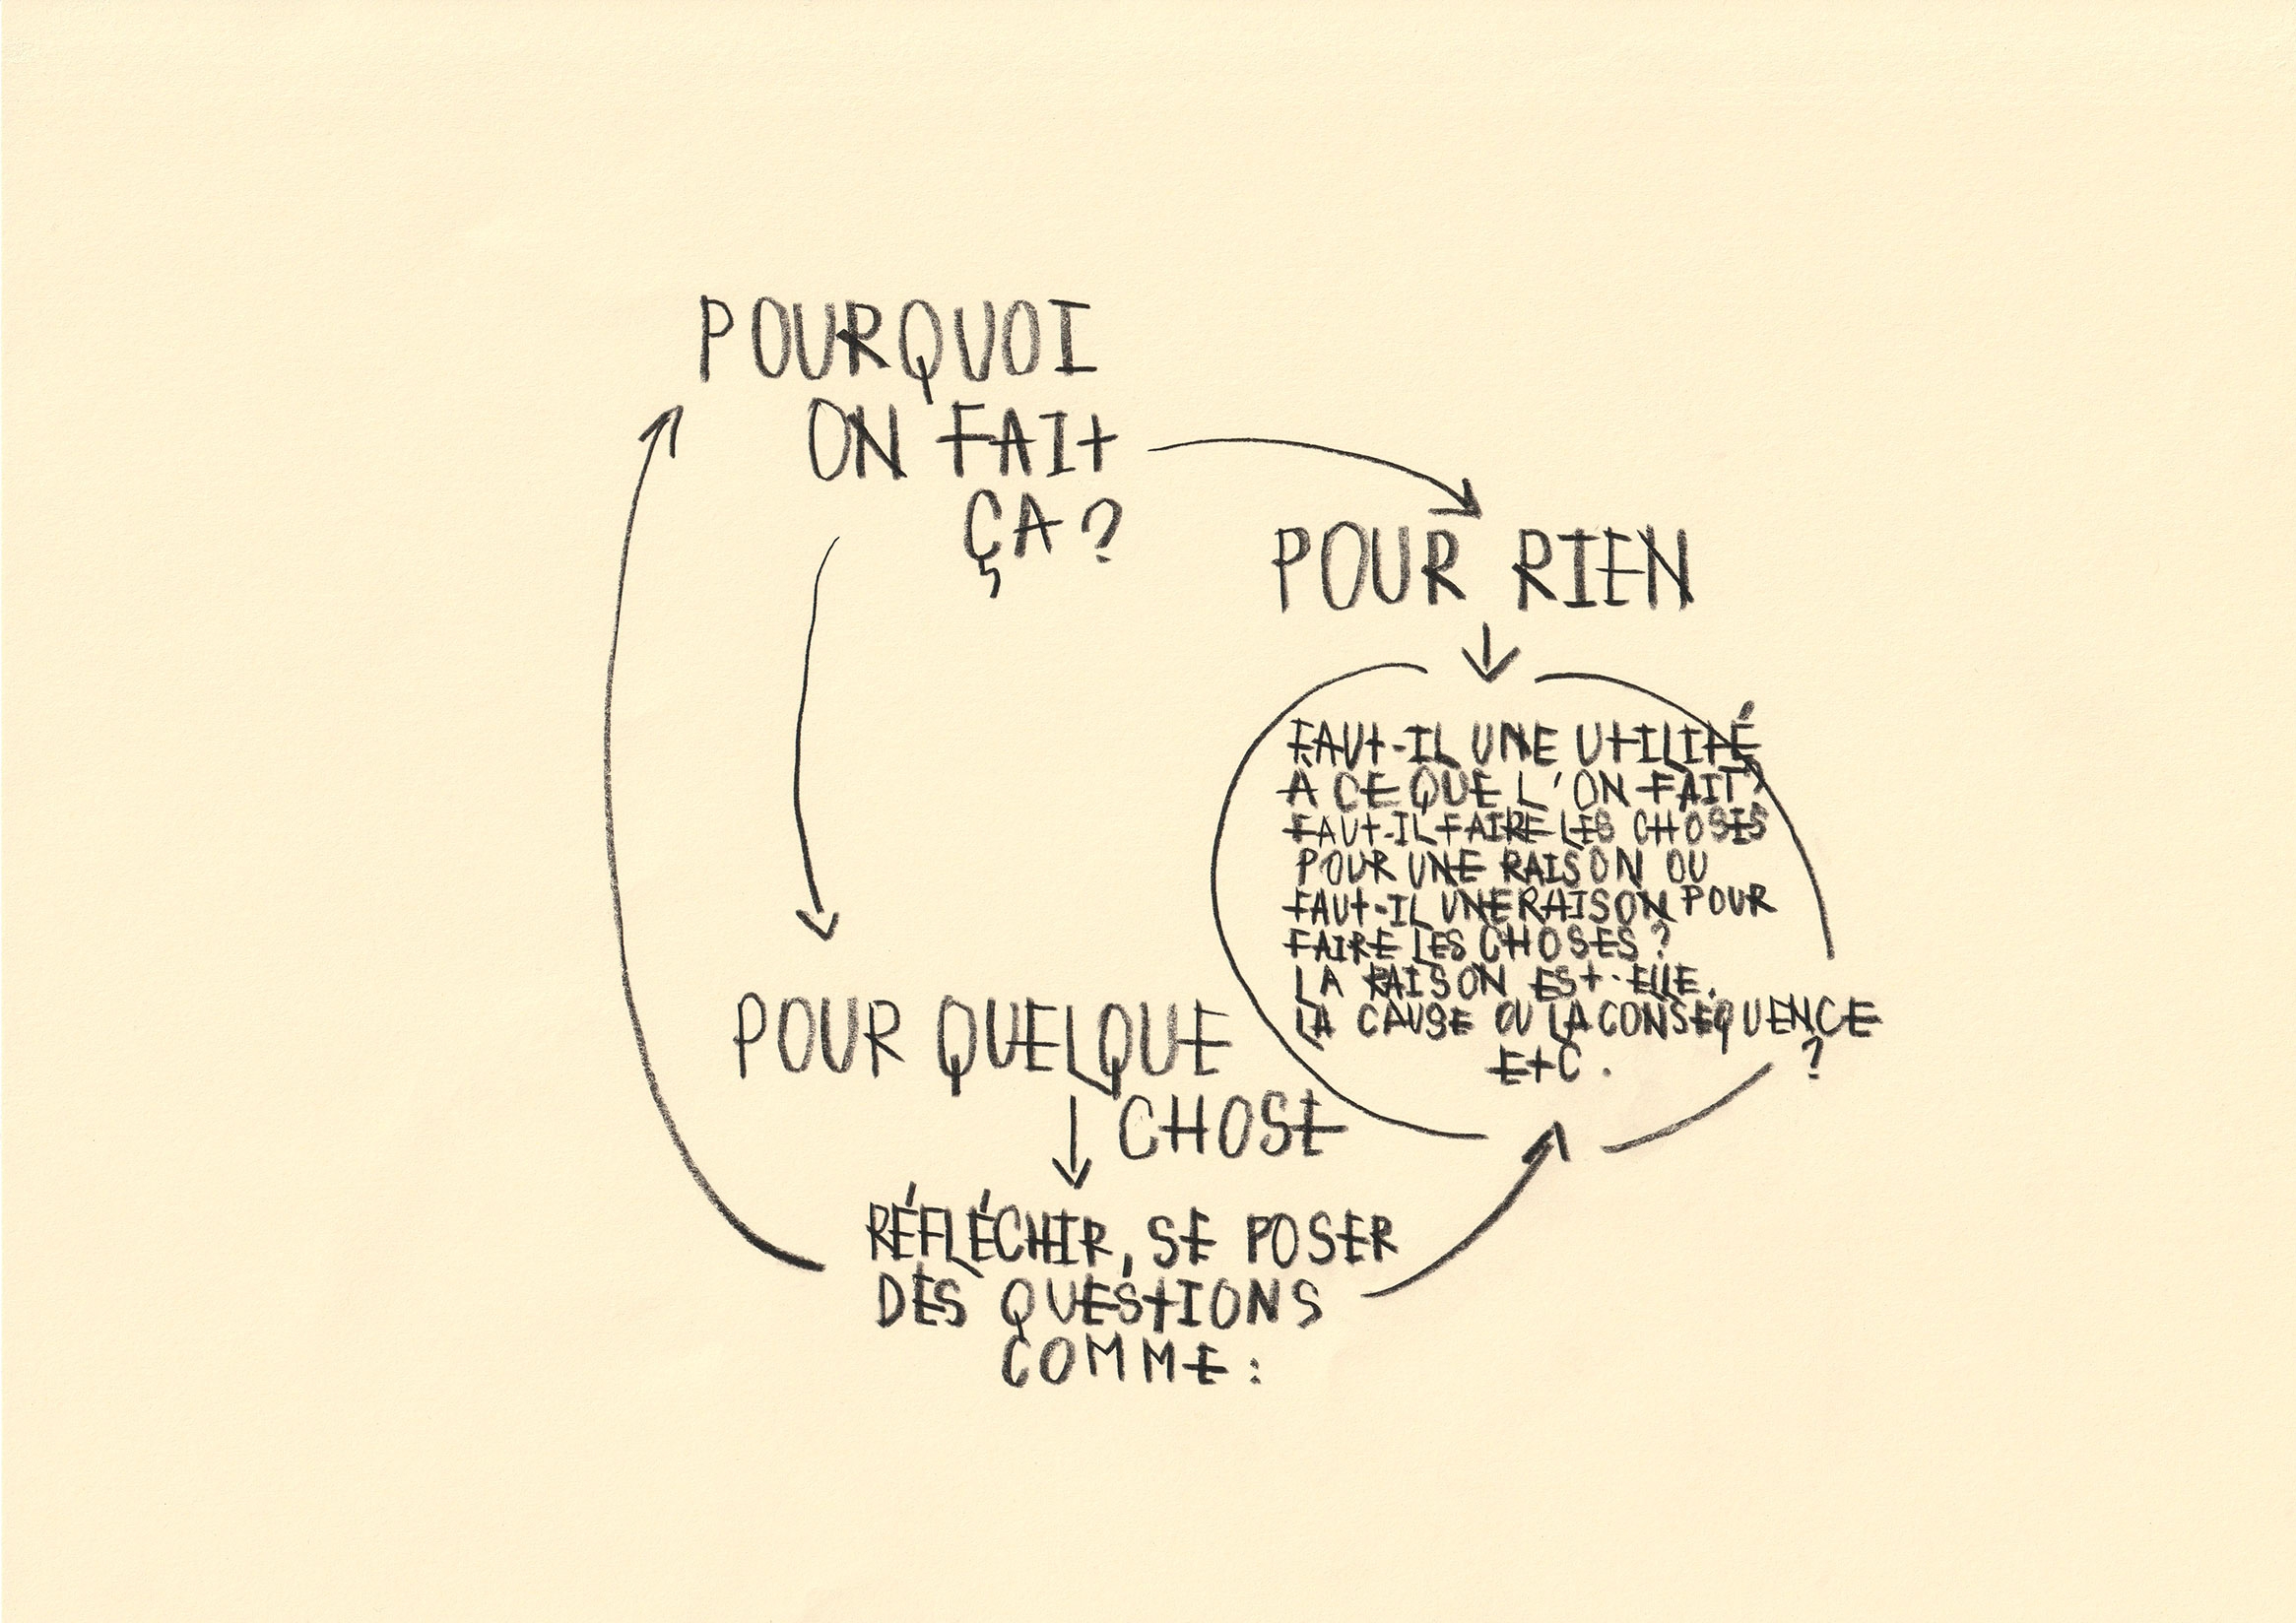 POURQUOI
ON FAIT
ÇA ?
POUR RIEN
FAUT-IL UNE UTILITÉ
A CE QUE L'ON FAIT?
FAUT-IL FAIRE LES CHOSES
POUR UNE RAISON OU
FAUT-IL UNE RAISON POUR
FAIRE LES CHOSES ?
LA RAISON EST-ELLE,
LA CAUSE OU LA CONSEQUENCE
?
ETC.
POUR QUELQUE
CHOSE
RÉFLÉCHIR, SE POSER
DES QUESTIONS
COMME :